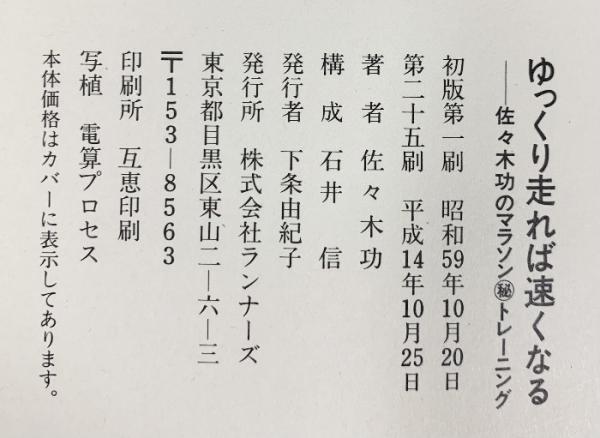 ゆっくり走れば速くなる
――佐々木功のマラソン㊙トレーニング
初版第一刷 昭和59年10月20日
第二十五刷 平成14年10月25日
著者 佐々木功
構成 石井信
発行者 下条由紀子
発行所 株式会社ランナーズ
東京都目黒区東山二―六―三
〒153―8563
印刷所 互恵印刷
写植 電算プロセス
本体価格はカバーに表示してあります。